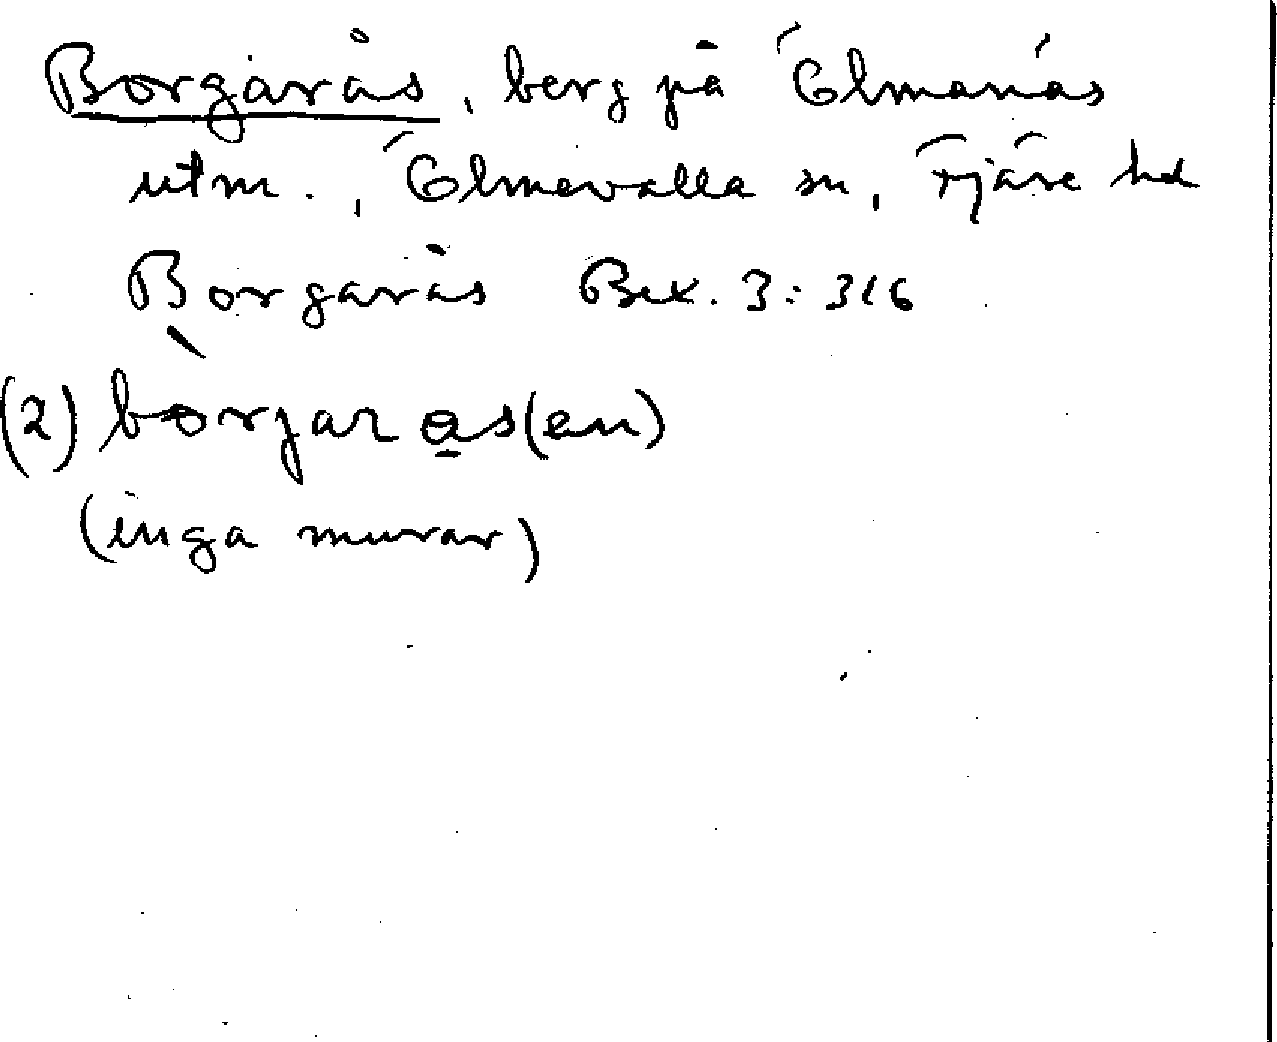 Borgarås, berg på Ölmanäs
utm., Ölmevalla sn, Fjäre hd
Borgarås Bex. 3:316
(2) bòrjar ås(en)
(inga murar)